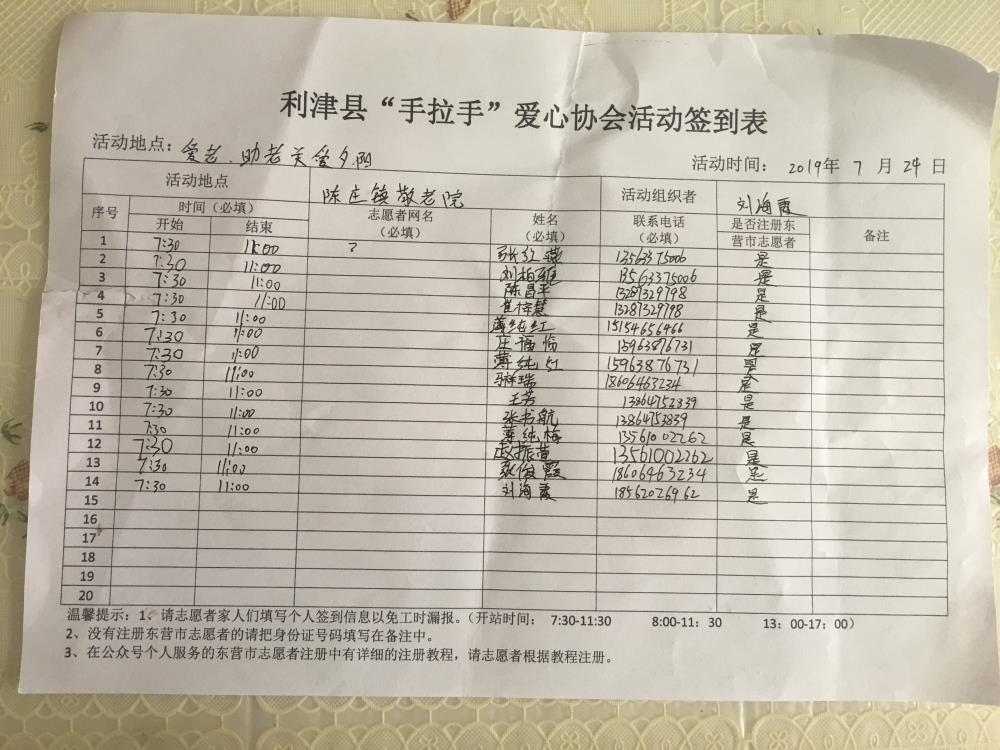 利津县“手拉手”爱心协会活动签到表
活动地点：爱老.助老关爱夕阳 活动时间：2019年7月24日
活动地点 陈庄镇敬老院 活动组织者 刘海霞
序号 时间（必填） 志愿者网名（必填） 姓名（必填） 联系电话（必填） 是否注册东营市志愿者 备注
开始 结束
1 7:30 11:00 张红燕 13563375006 是
2 7:30 11:00 刘柏延 13563375006 是
3 7:30 11:00 陈昌平 13287329798 是
4 7:30 11:00 崔梓慧 13287329798 是
5 7:30 11:00 薄纯红 15154656466 是
6 7:30 11:00 庄福怡 15963876731 是
7 7:30 11:00 薄纯红 15963876731 是
8 7:30 11:00 祥瑞 18606463234 是
9 7:30 11:00 王芳 13864752839 是
10 7:30 11:00 张书航 13864753839 是
11 7:30 11:00 薄纯梅 13561002262 是
12 7:30 11:00 赵振萱 13561002262 是
13 7:30 11:00 俊霞 18606463234 是
14 7:30 11:00 刘海霞 18562026962 是
15
16
17
18
19
20
温馨提示：1、请志愿者家人们填写个人签到信息以免工时漏报。（开站时间： 7:30-11:30 8:00-11：30 13：00-17：00）
2、没有注册东营市志愿者的请把身份证号码填写在备注中。
3、在公众号个人服务的东营市志愿者注册中有详细的注册教程，请志愿者根据教程注册。